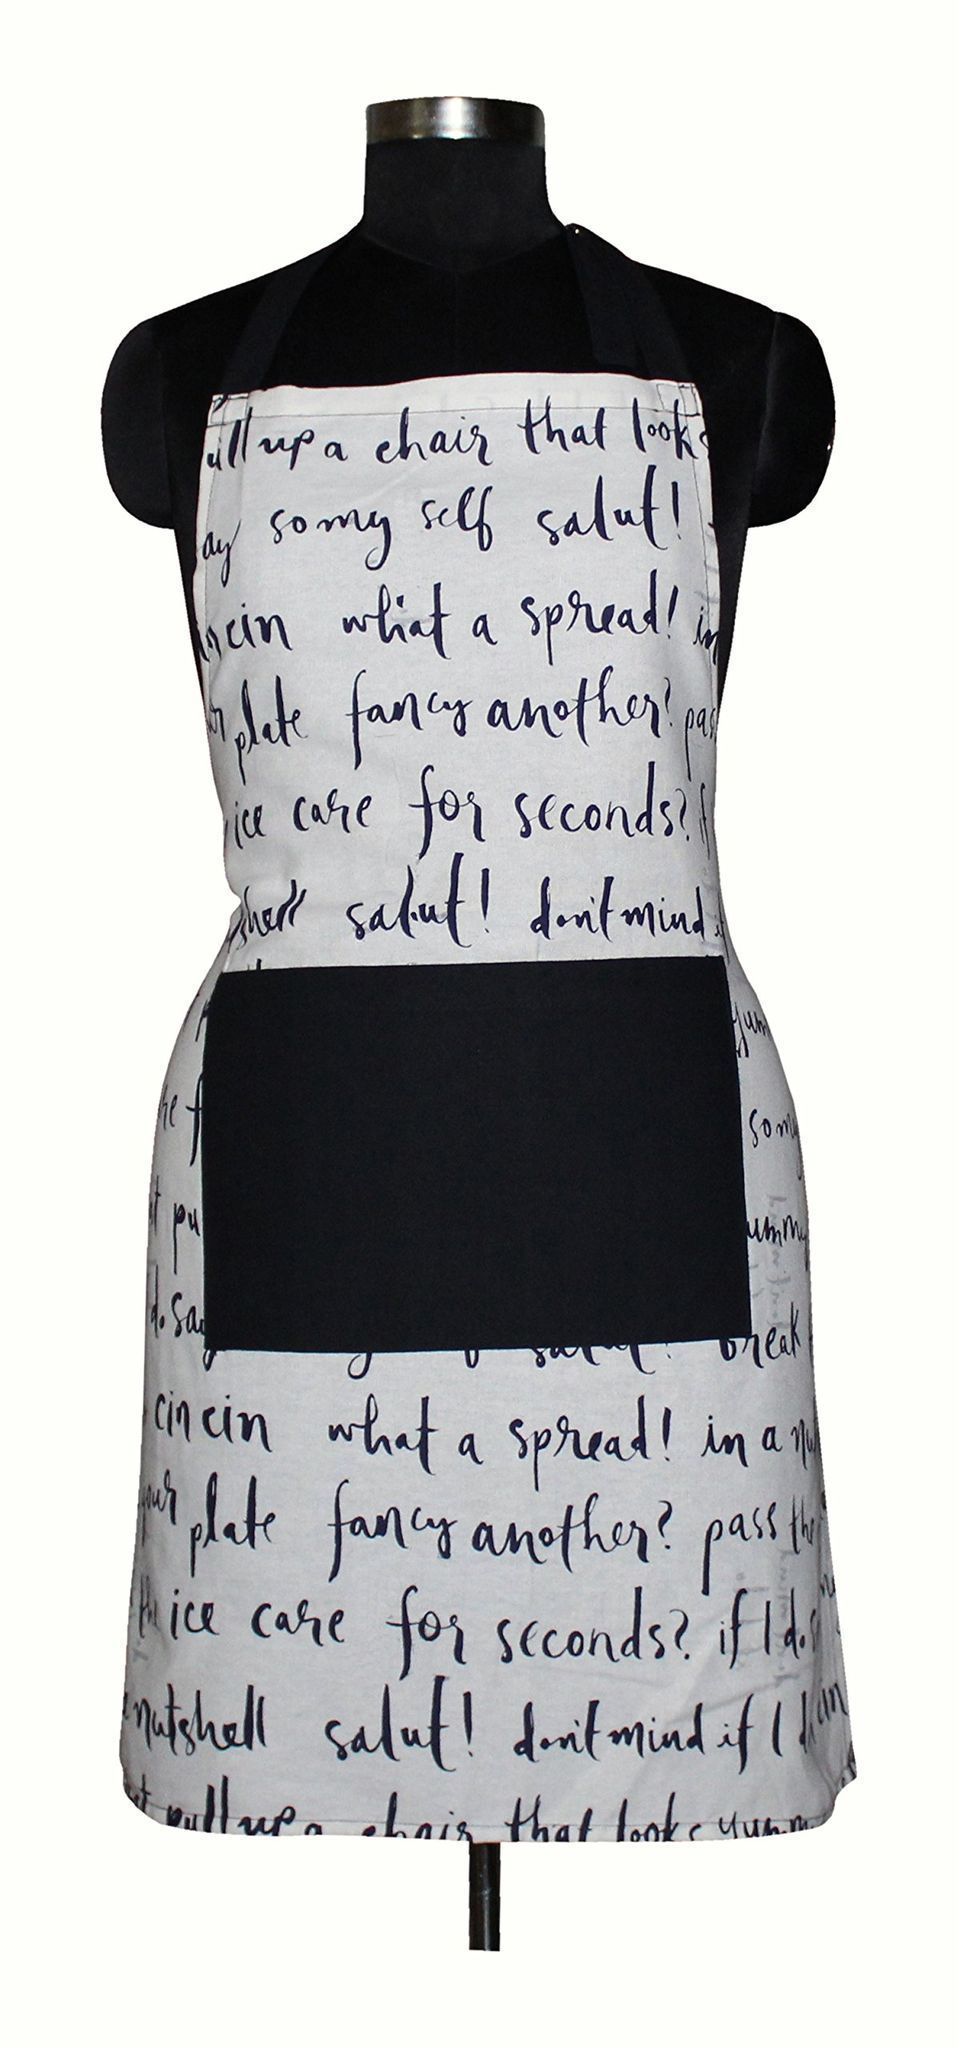 pull up a chair that looks
ay so my self salut!
cin cin what a spread! in
plate fancy another? pass
ice care for seconds? if
shell salut! don't mind if
yum
re f som
pu ummy
do. say salut! break
cin cin what a spread! in a nu
your plate fancy another? pass the
the ice care for seconds? if I do. s
nutshell salut! don't mind if I d cin
pull up a chair that looks yumm